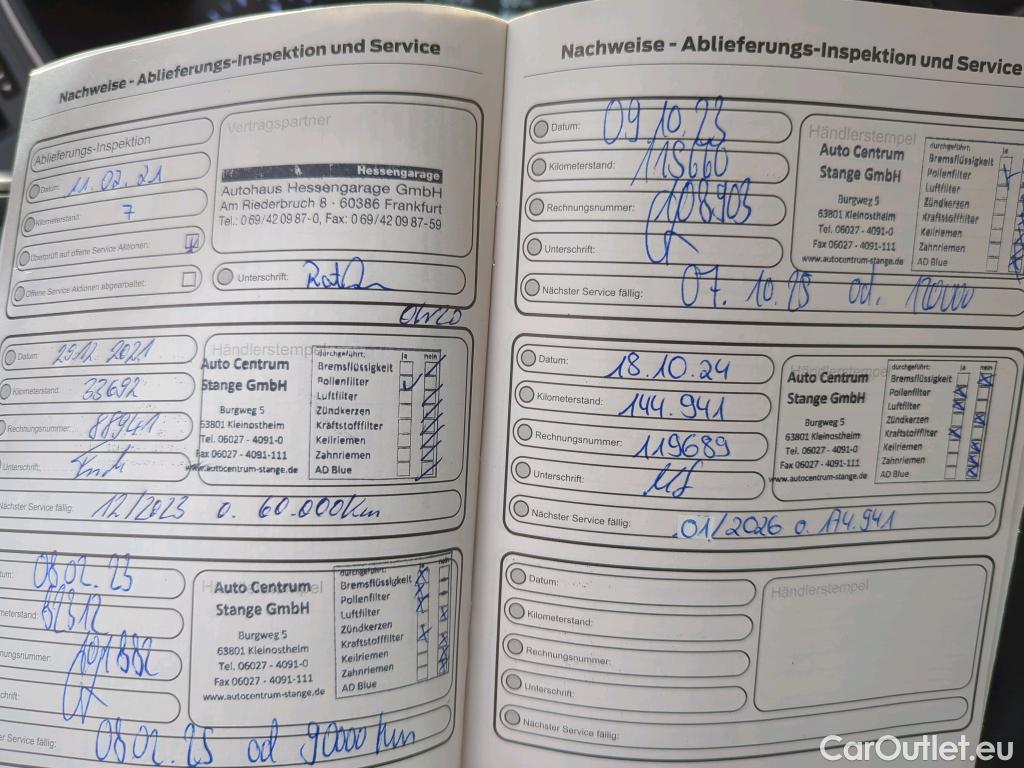 Nachweise - Ablieferungs-Inspektion und Service
Ablieferungs-Inspektion
Datum: 11.02.21
Kilometerstand: 7
Überprüft auf offene Service Aktionen:
Offene Service Aktionen abgearbeitet:
Vertragspartner
Hessengarage
Autohaus Hessengarage GmbH
Am Riederbruch 8 · 60386 Frankfurt
Tel.: 0 69/42 09 87-0, Fax: 0 69/42 09 87-59
Unterschrift:
Datum: 2912.2021
Kilometerstand: 33692
Rechnungsnummer: 88941
Unterschrift:
Händlerstempel
Auto Centrum
Stange GmbH
Burgweg 5
63801 Kleinostheim
Tel. 06027 - 4091-0
Fax 06027 - 4091-111
www.autocentrum-stange.de
durchgeführt: ja nein
Bremsflüssigkeit
Pollenfilter
Luftfilter
Zündkerzen
Kraftstofffilter
Keilriemen
Zahnriemen
AD Blue
Nächster Service fällig: 12/2023 o. 60.000km
tum: 08.02.23
meterstand: 82312
nungsnummer: 101882
chrift:
Auto Centrum
Stange GmbH
Burgweg 5
63801 Kleinostheim
Tel. 06027 - 4091-0
Fax 06027 - 4091-111
www.autocentrum-stange.de
durchgeführt: ja nein
Bremsflüssigkeit
Pollenfilter
Luftfilter
Zündkerzen
Kraftstofffilter
Keilriemen
Zahnriemen
AD Blue
er Service fällig: 08.02.25 od 90000 km
Nachweise - Ablieferungs-Inspektion und Service
Datum: 09.10.23
Kilometerstand: 115660
Rechnungsnummer: 108903
Unterschrift:
Händlerstempel
Auto Centrum
Stange GmbH
Burgweg 5
63801 Kleinostheim
Tel. 06027 - 4091-0
Fax 06027 - 4091-111
www.autocentrum-stange.de
durchgeführt: ja
Bremsflüssigkeit
Pollenfilter
Luftfilter
Zündkerzen
Kraftstofffilter
Keilriemen
Zahnriemen
AD Blue
Nächster Service fällig: 07.10.25 od.
Datum: 18.10.24
Kilometerstand: 144.941
Rechnungsnummer: 119689
Unterschrift:
Auto Centrum
Stange GmbH
Burgweg 5
63801 Kleinostheim
Tel. 06027 - 4091-0
Fax 06027 - 4091-111
www.autocentrum-stange.de
durchgeführt: ja nein
Bremsflüssigkeit
Pollenfilter
Luftfilter
Zündkerzen
Kraftstofffilter
Keilriemen
Zahnriemen
AD Blue
Nächster Service fällig: 01/2026 o. 174.941
Datum:
Kilometerstand:
Rechnungsnummer:
Unterschrift:
Händlerstempel
Nächster Service fällig:
CarOutlet.eu